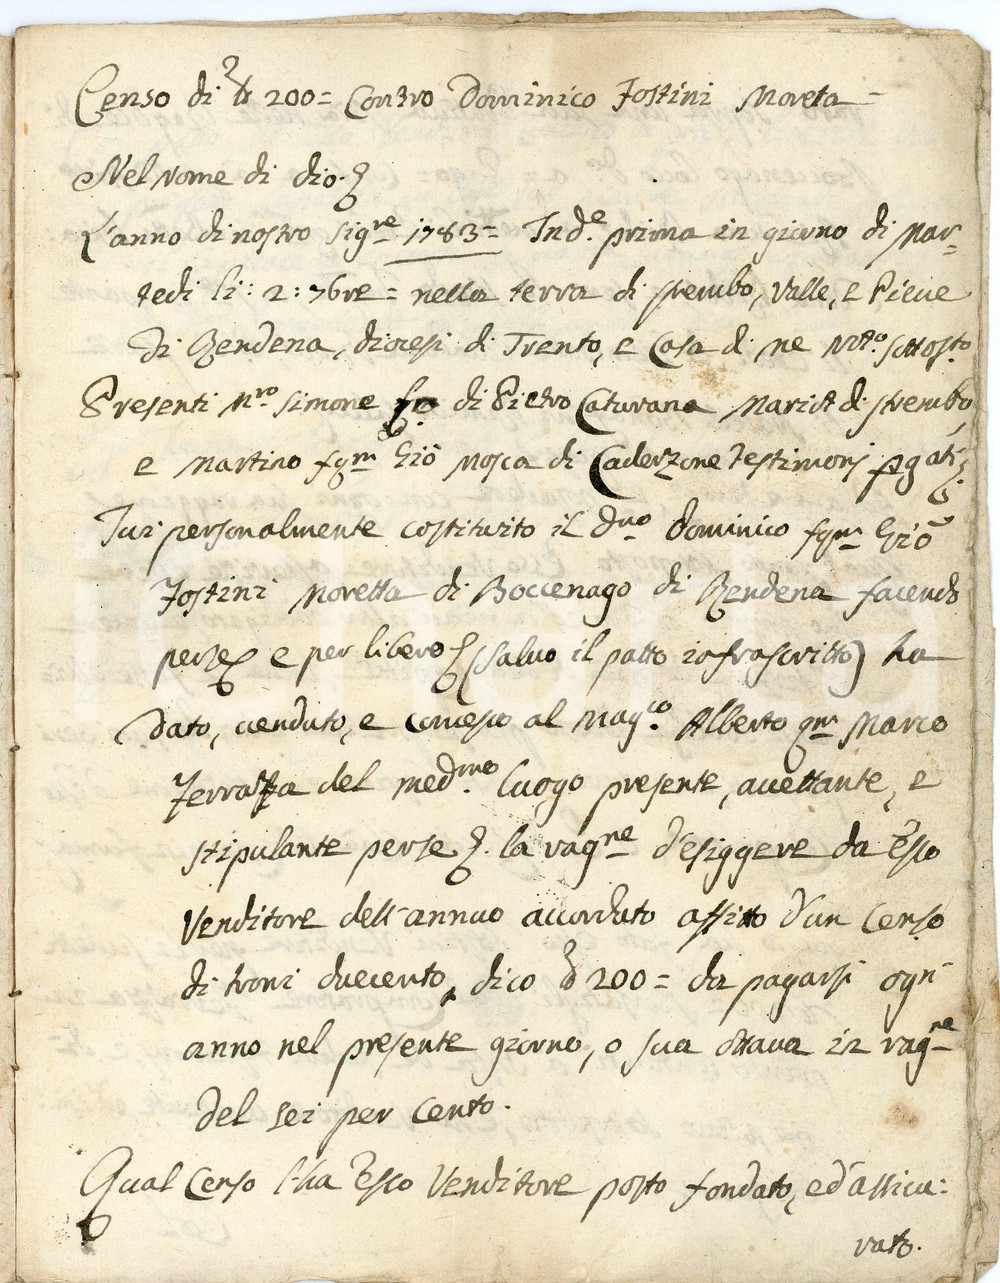 Censo di 200= Contro Dominico Fostini Moreta
Nel Nome di dio.
L'anno di nostro Sig.re 1783= Ind.e prima in giorno di Mar-
tedi li: 2: 76re = nella terra di Strembo, Valle, e Pieve
di Rendena, diocesi di Trento, e Casa di me Ntto. sottost.o
Presenti M.ro Simone di Pietro Caturana Mariot di Strembo
e Martino fqm Giõ Mosca di Caderzone Testimonj pgati
Ivi personalmente costituito il D.no Dominico fqm Giõ
Fostini Moretta di Boccenago di Rendena facendo
per se e per libero (salvo il patto infrascritto) ha
dato, venduto, e concesso al Mag.co Alberto qm Marco
Ferrazza del med.mo luogo presente, accettante, e
stipulante per se la rag.ne d'esiggere da Esso
Venditore dell'annuo accordato affitto d'un Censo
di troni duecento, dico 200= da pagarsi ogn'
anno nel presente giorno, o sua ottava in rag.ne
del sei per cento.
Qual Censo l'ha Esso Venditore posto fondato, ed assicu:
rato.